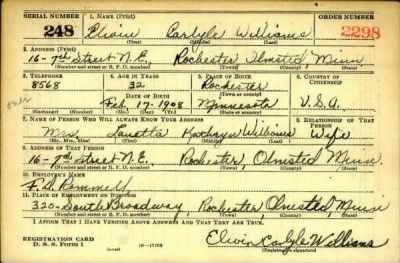 SERIAL NUMBER 1. NAME (Print) ORDER NUMBER
248 Elwin Carlyle Williams 2298
(First) (Middle) (Last)
2. ADDRESS (Print)
16-7th Street N.E. Rochester Olmsted Minn
(Number and street or R. F. D. number) (Town) (County) (State)
3. TELEPHONE 4. AGE IN YEARS 5. PLACE OF BIRTH 6. COUNTRY OF CITIZENSHIP
8568 32 Rochester
DATE OF BIRTH (Town or county)
over Feb. 17-1908 Minnesota U.S.A.
(Exchange) (Number) (Mo.) (Day) (Yr.) (State or country)
7. NAME OF PERSON WHO WILL ALWAYS KNOW YOUR ADDRESS 8. RELATIONSHIP OF THAT PERSON
Mrs. Kathryn Williams Wife
(Mr., Mrs., Miss) (First) (Middle) (Last)
9. ADDRESS OF THAT PERSON
16-7th Street N.E. Rochester, Olmsted Minn
(Number and street or R. F. D. number) (Town) (County) (State)
10. EMPLOYER'S NAME
11. PLACE OF EMPLOYMENT OR BUSINESS
320-South Broadway, Rochester Olmsted, Minn
(Number and street or R. F. D. number) (Town) (County) (State)
I AFFIRM THAT I HAVE VERIFIED ABOVE ANSWERS AND THAT THEY ARE TRUE.
REGISTRATION CARD
D. S. S. Form 1 (over) 16-17105 Elwin Carlyle Williams
(Registrant's signature)